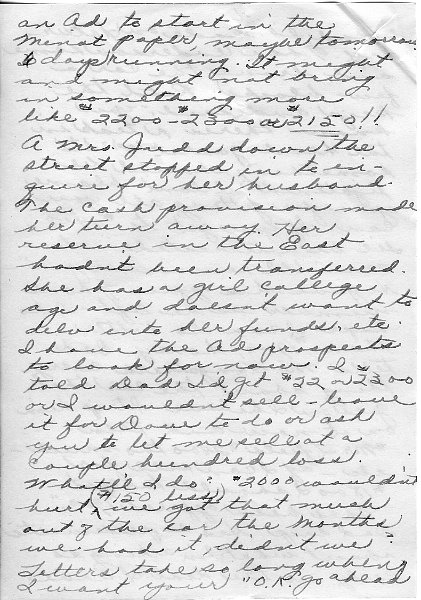 an Ad to start in the
Minot paper maybe tomorrow
6 days running. It might
and might not bring
in something more
like $2200-$2300 or $2150!!
A Mrs. Judd down the
street stopped in to en-
quire for her husband.
The cash provision made
her turn away. Her
reserve in the East
hadn't been transferred.
She has a girl college
age and doesn't want to
delv into her funds, etc.
I have the Ad prospects
to look for now. I
told Dad I'd get $22 or $2300
or I wouldn't sell - leave
it for Dave to do or ask
you to let me sell at a
couple hundred loss.
What'll I do? $2000 wouldn't
hurt, ($150 less) we got that much
out of the car the months
we had it, didn't we?
Letters take so long when
I want your "O.K." go ahead